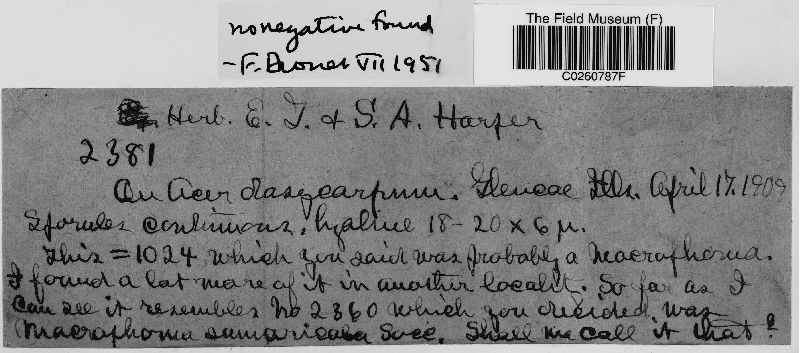 no negative found
- F. Drouet VII 1951
The Field Museum (F)
C0260787F
Herb. E. T. & S. A. Harper
2381
On Acer dasycarpum. Glencoe Ills. April 17. 1909
Sporules continuous, hyaline 18-20 x 6 µ.
This = 1024 which you said was probably a Macrophoma.
I found a lot more of it in another localit. So far as I
can see it resembles No 2360 which you decided was
Macrophoma samaricola Sacc. Shall we call it that?